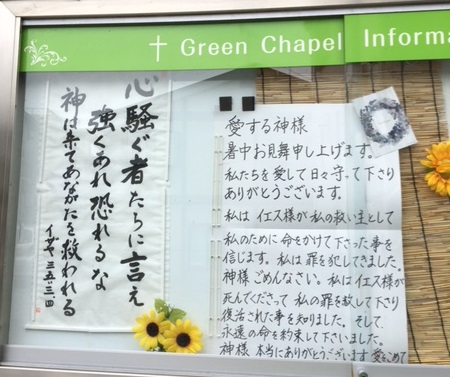 † Green Chapel Informa
心騒ぐ者たちに言え
強くあれ恐れるな
神は来てあなたがたを救われる
イザヤ三五・三、四
愛する神様
暑中お見舞申し上げます。
私たちを愛して日々守って下さり
ありがとうございます。
私は イエス様が私の救い主として
私のために命をかけて下さった事を
信じます。私は罪を犯してきました。
神様ごめんなさい。私はイエス様が
死んでくださって 私の罪を赦して下さり
復活された事を知りました。そして
永遠の命を約束して下さいました。
神様 本当にありがとうございます 愛をこめて